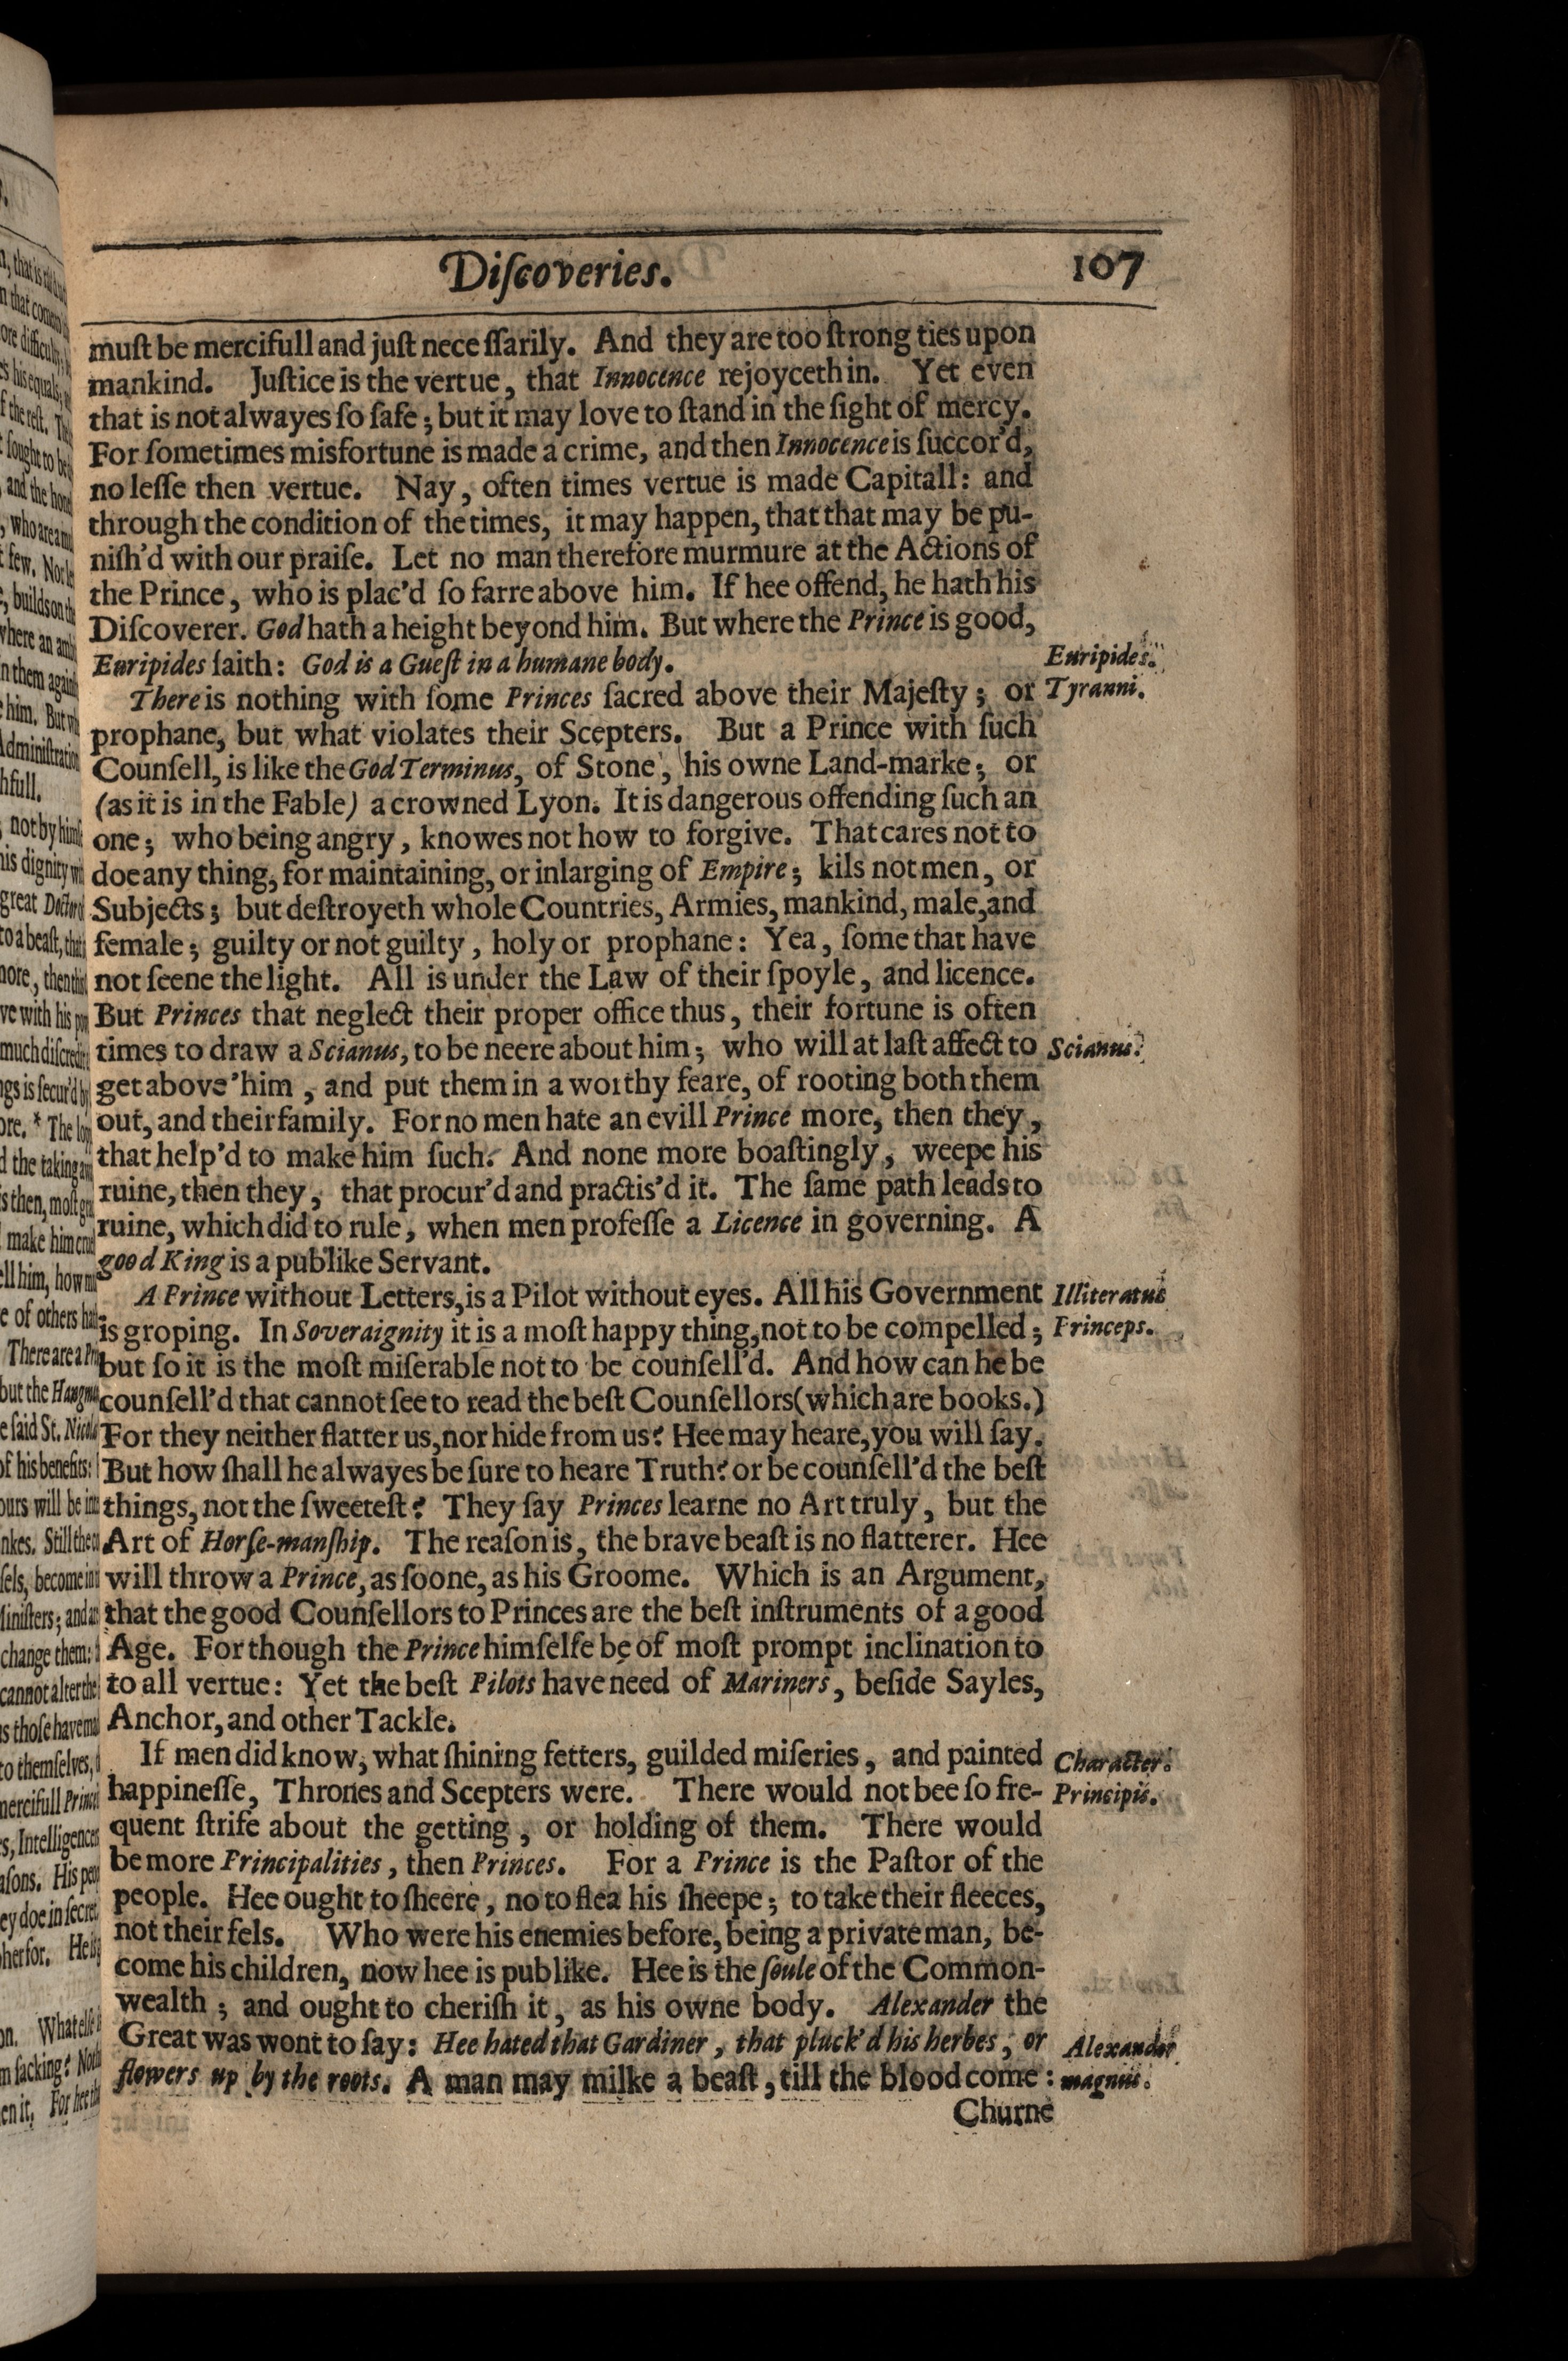 Diſcoveries. 107
muſt be mercifull and juſt nece ſſarily. And they are too ſtrong ties upon
mankind. Juſtice is the vertue, that Innocence rejoyceth in. Yet even
that is not alwayes ſo ſafe; but it may love to ſtand in the ſight of mercy.
For ſometimes misfortune is made a crime, and then Innocence is ſuccor'd,
no leſſe then vertue. Nay, often times vertue is made Capitall: and
through the condition of the times, it may happen, that that may be pu-
niſh'd with our praiſe. Let no man therefore murmure at the Actions of
the Prince, who is plac'd ſo farre above him. If hee offend, he hath his
Diſcoverer. God hath a height beyond him. But where the Prince is good,
Euripides ſaith: God is a Gueſt in a humane body. Euripides.
There is nothing with ſome Princes ſacred above their Majeſty; or Tyranni.
prophane, but what violates their Scepters. But a Prince with ſuch
Counſell, is like the God Terminus, of Stone, his owne Land-marke; or
(as it is in the Fable) a crowned Lyon. It is dangerous offending ſuch an
one; who being angry, knowes not how to forgive. That cares not to
doe any thing, for maintaining, or inlarging of Empire; kils not men, or
Subjects; but deſtroyeth whole Countries, Armies, mankind, male, and
female; guilty or not guilty, holy or prophane: Yea, ſome that have
not ſeene the light. All is under the Law of their ſpoyle, and licence.
But Princes that neglect their proper office thus, their fortune is often
times to draw a Scianus, to be neere about him; who will at laſt affect to Scianus.
get above him, and put them in a worthy feare, of rooting both them
out, and their family. For no men hate an evill Prince more, then they,
that help'd to make him ſuch. And none more boaſtingly, weepe his
ruine, then they, that procur'd and practis'd it. The ſame path leads to
ruine, which did to rule, when men profeſſe a Licence in governing. A
good King is a publike Servant.
A Prince without Letters, is a Pilot without eyes. All his Government Illiteratus
is groping. In Soveraignity it is a moſt happy thing, not to be compelled; Princeps.
but ſo it is the moſt miſerable not to be counſell'd. And how can he be
counſell'd that cannot ſee to read the beſt Counſellors (which are books.)
For they neither flatter us, nor hide from us? Hee may heare, you will ſay.
But how ſhall he alwayes be ſure to heare Truth? or be counſell'd the beſt
things, not the ſweeteſt? They ſay Princes learne no Art truly, but the
Art of Horſe-manſhip. The reaſon is, the brave beaſt is no flatterer. Hee
will throw a Prince, as ſoone, as his Groome. Which is an Argument,
that the good Counſellors to Princes are the beſt inſtruments of a good
Age. For though the Prince himſelfe be of moſt prompt inclination to
to all vertue: Yet the beſt Pilots have need of Mariners, beſide Sayles,
Anchor, and other Tackle.
If men did know, what ſhining fetters, guilded miſeries, and painted Character.
happineſſe, Thrones and Scepters were. There would not bee ſo fre- Principis.
quent ſtrife about the getting, or holding of them. There would
be more Principalities, then Princes. For a Prince is the Paſtor of the
people. Hee ought to ſheere, no to flea his ſheepe; to take their fleeces,
not their fels. Who were his enemies before, being a private man, be-
come his children, now hee is publike. Hee is the ſoule of the Common-
wealth; and ought to cheriſh it, as his owne body. Alexander the
Great was wont to ſay: Hee hated that Gardiner, that pluck'd his herbes, or Alexander
flowers up by the roots. A man may milke a beaſt, till the blood come: magnus.
Churne